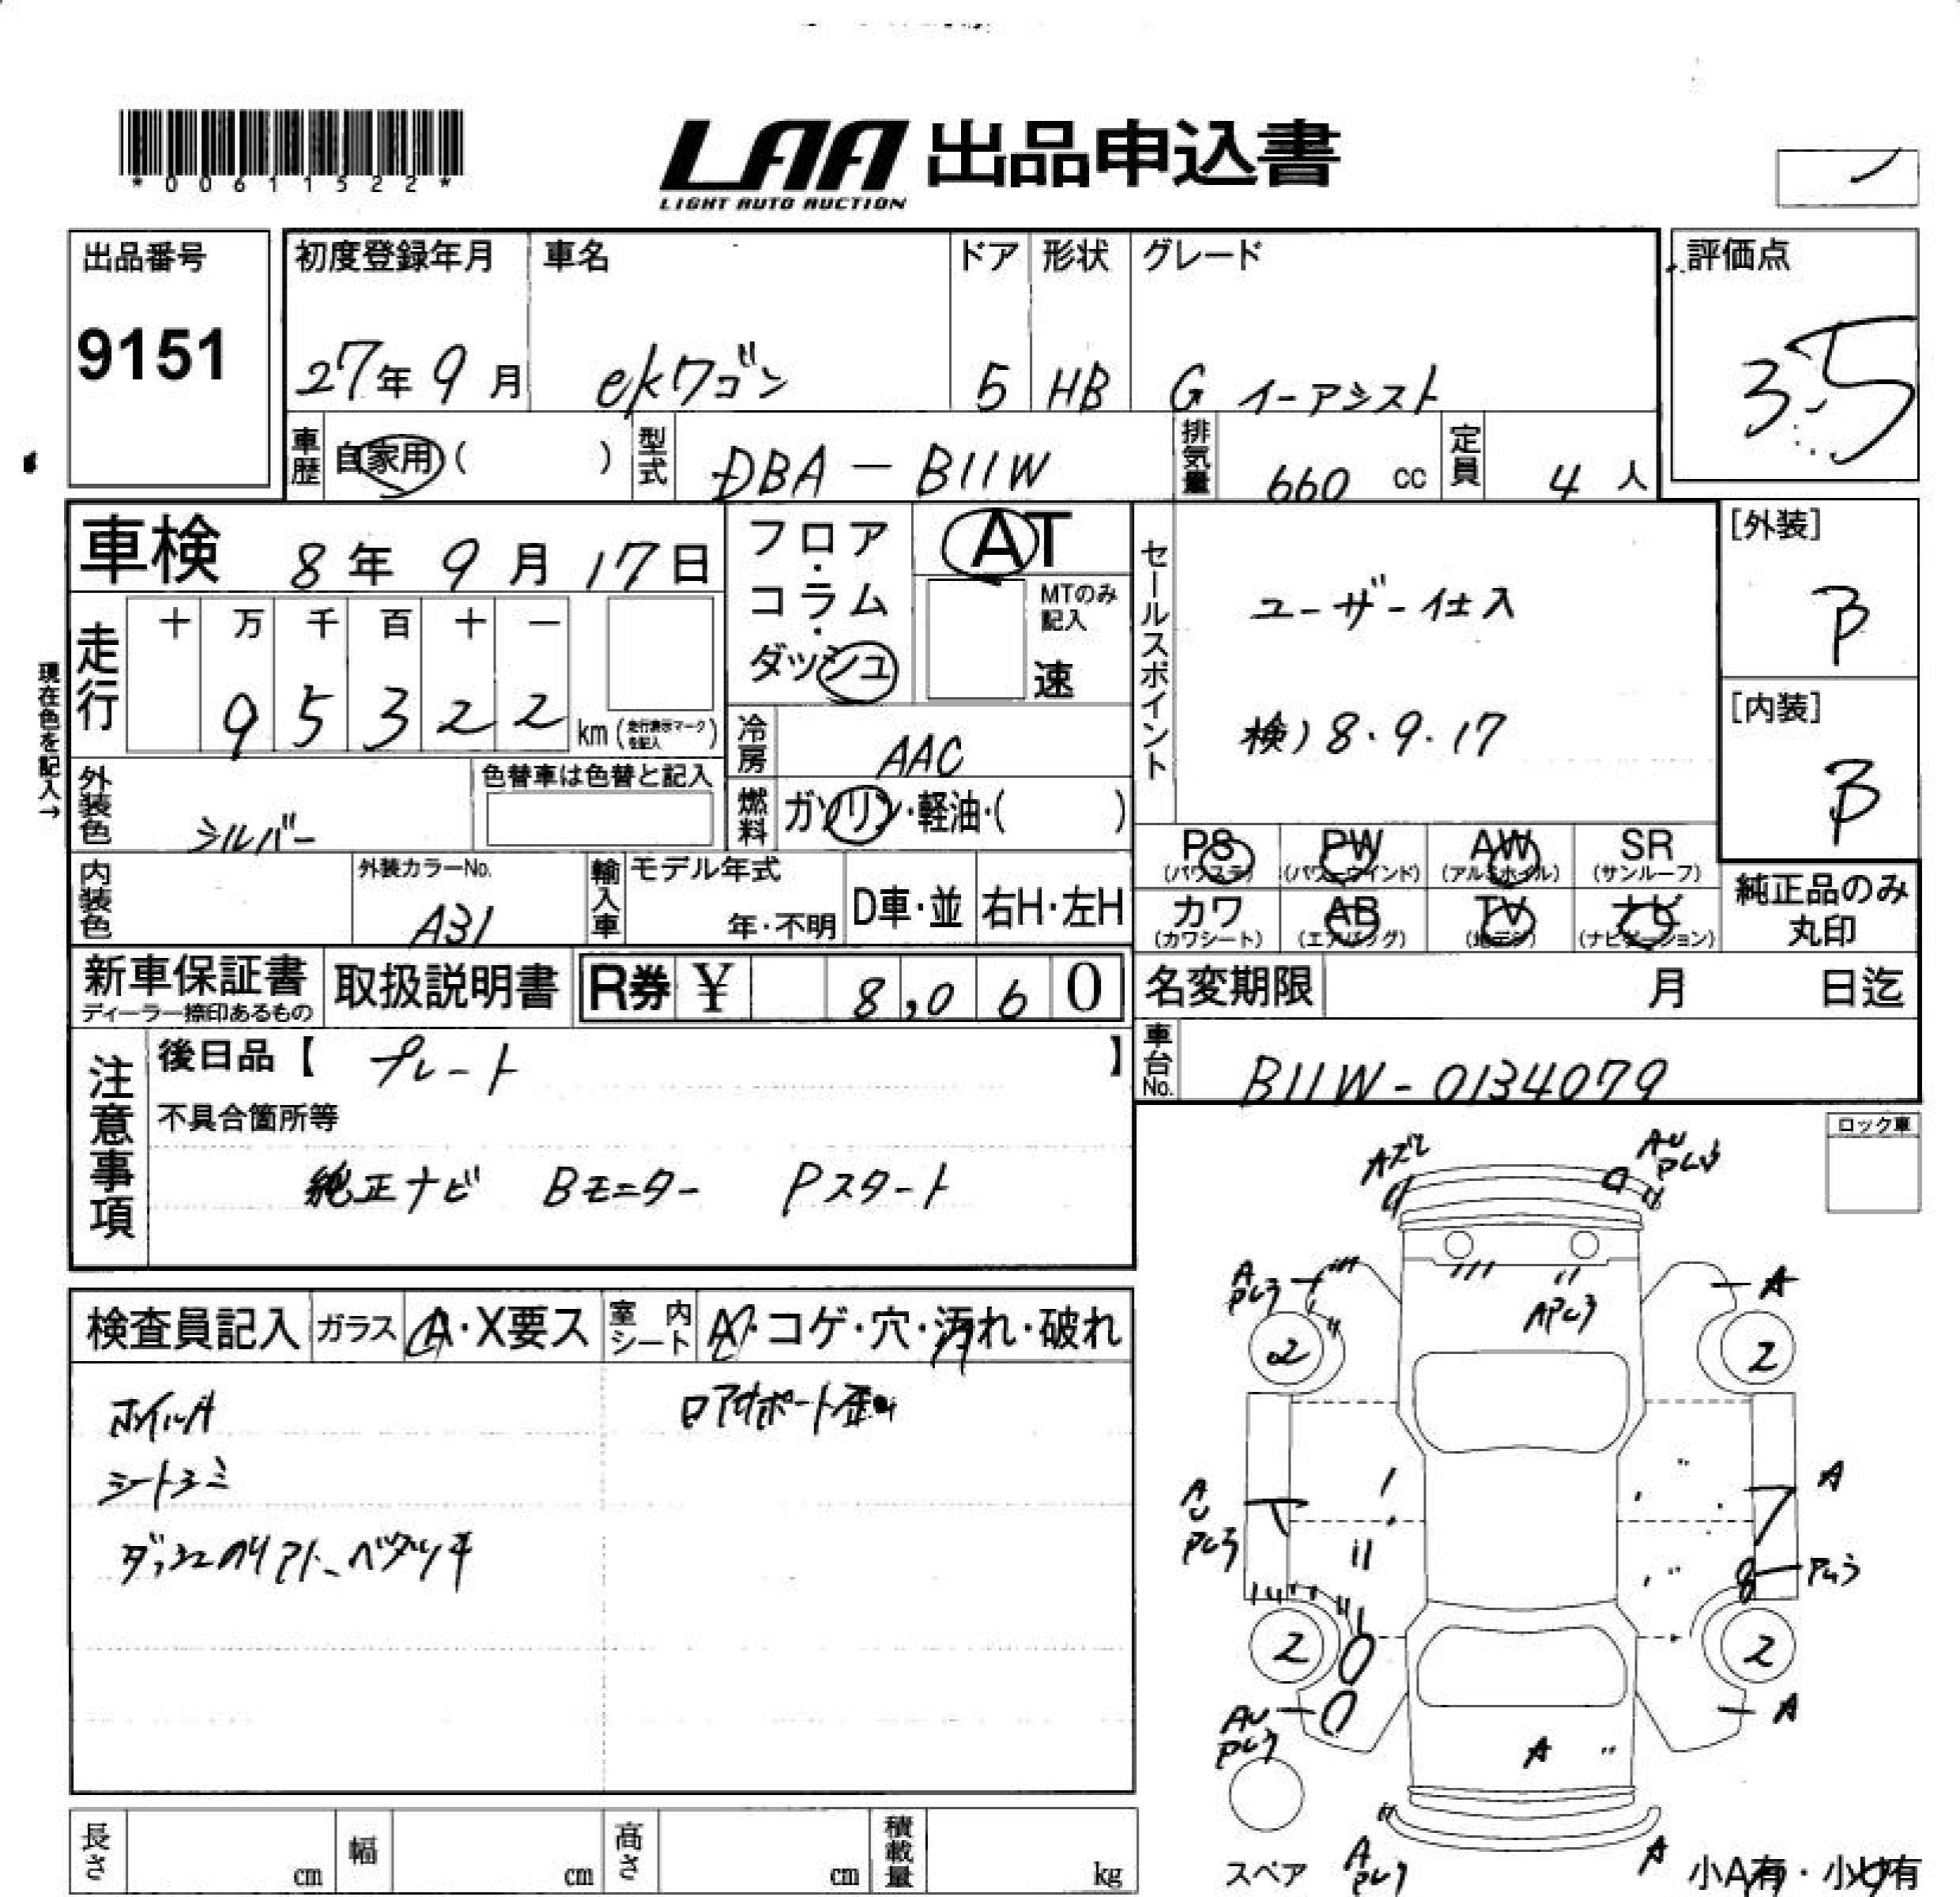 *00611522*
LAA 出品申込書
LIGHT AUTO AUCTION
出品番号
9151
初度登録年月
27年 9月
車名
ekワゴン
ドア
5
形状
HB
グレード
G イーアシスト
評価点
3.5
車歴 自家用( )
型式 DBA-B11W
排気量 660 cc
定員 4 人
車検 8年 9月 17日
フロア・コラム・ダッシュ
AT
MTのみ記入
速
セールスポイント
ユーザー仕入
検) 8.9.17
[外装]
B
[内装]
B
現在色を記入→
走行
十 万 千 百 十 一
9 5 3 2 2 km (走行表示マークを記入)
冷房 AAC
燃料 ガソリン・軽油・( )
外装色 シルバー
色替車は色替と記入
内装色
外装カラーNo.
A31
輸入車
モデル年式
年・不明
D車・並
右H・左H
PS (パワステ)
PW (パワーウインド)
AW (アルミホイル)
SR (サンルーフ)
カワ (カワシート)
AB (エアバッグ)
TV (地デジ)
ナビ (ナビゲーション)
純正品のみ丸印
新車保証書
ディーラー捺印あるもの
取扱説明書
R券 ¥ 8,060
名変期限 月 日迄
車台No. B11W-0134079
注意事項
後日品【 プレート 】
不具合箇所等
純正ナビ Bモニター Pスタート
ロック車
検査員記入
ガラス A・X要ス
室内シート A・コゲ・穴・汚れ・破れ
ホイルA
ロアサポート歪
シートシミ
ダッシュノリアト、ベタツキ
A
A
2
2
A
2
2
A
A
A
スペア
小A有・小U有
長さ cm
幅 cm
高さ cm
積載量 kg